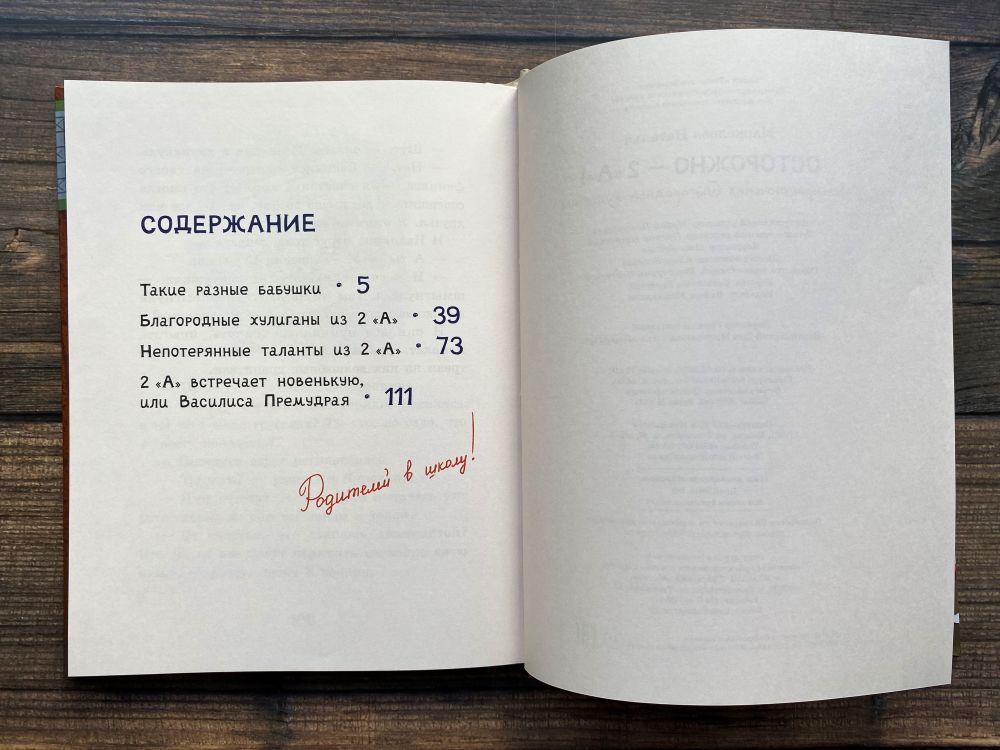 СОДЕРЖАНИЕ
Такие разные бабушки • 5
Благородные хулиганы из 2 «А» • 39
Непотерянные таланты из 2 «А» • 73
2 «А» встречает новенькую,
или Василиса Премудрая • 111
Родителей в школу!